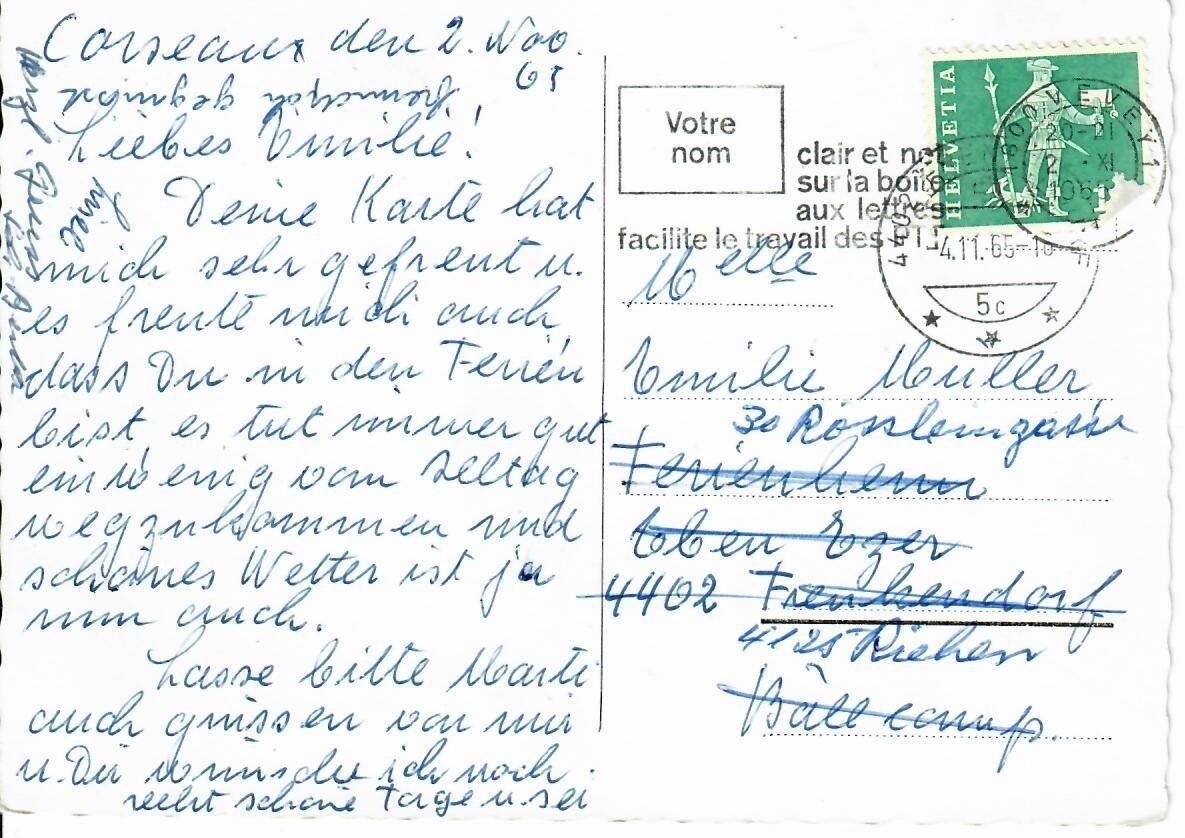 Corseaux den 2. Nov.
65
Liebes Emilie!
Deine Karte hat
mich sehr gefreut u.
es freute mich auch
dass Du in den Ferien
bist, es tut immer gut
ein wenig vom Alltag
wegzukommen und
schönes Wetter ist ja
nun auch.
Lasse bitte Marti
auch grüssen von mir
u. Dir wünsche ich noch
recht schöne Tage u. sei
herzl.
Votre
nom
clair et net
sur la boîte
aux lettres
facilite le travail des PTT
HELVETIA
1800 VEVEY 1
20-21
XI
1965
4402
4.11.65-10
5c
Melle
Emilie Muller
30 Rösslerngasse
Ferienheim
Eben Ezer
4402 Frenkendorf
4125 Riehen
Bâle camp.